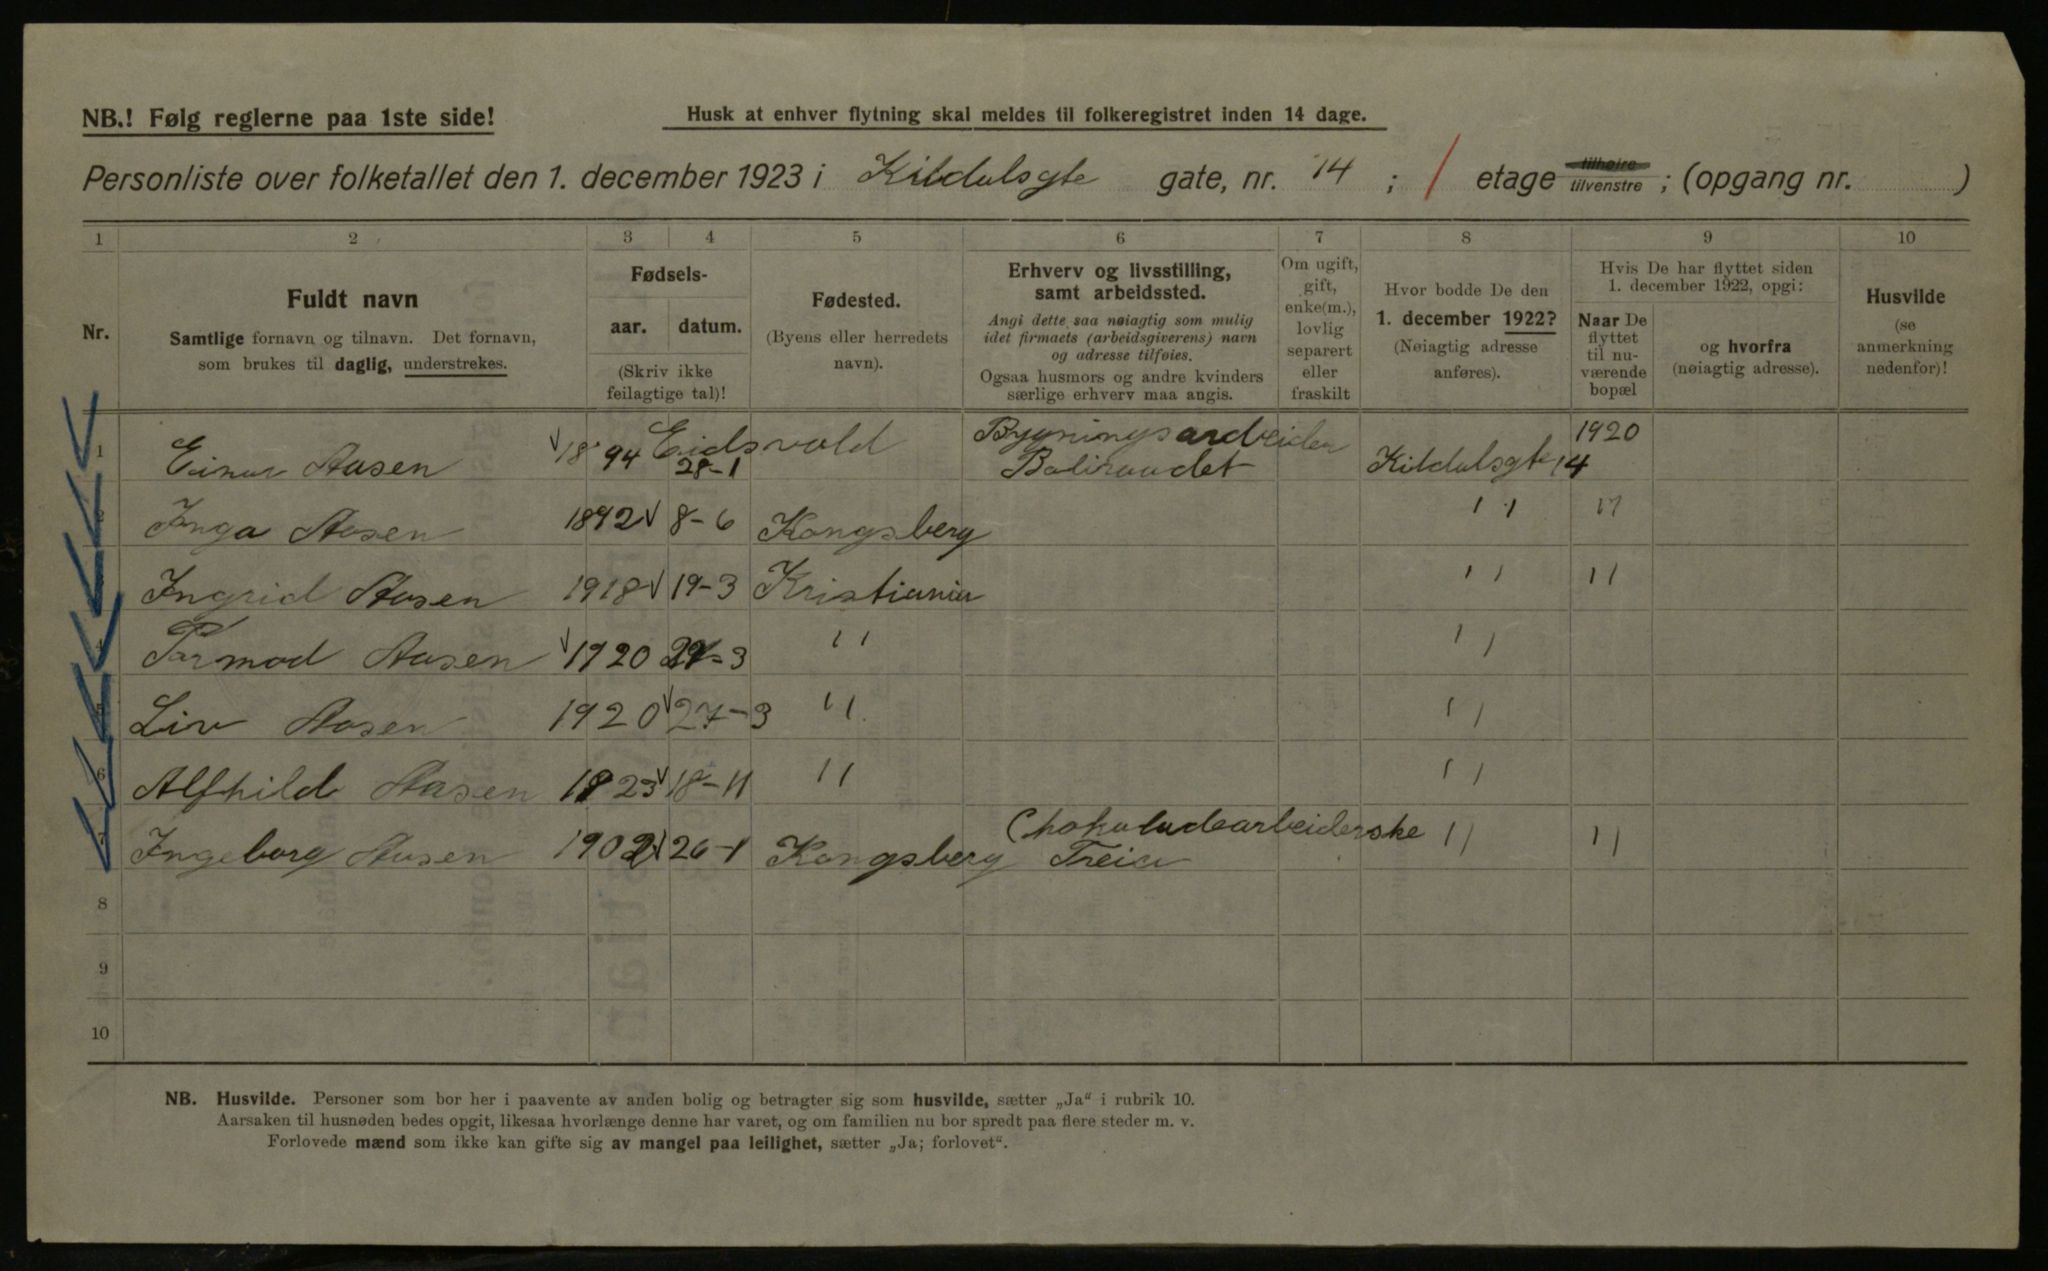 NB.! Følg reglerne paa 1ste side!
Husk at enhver flytning skal meldes til folkeregistret inden 14 dage.
Personliste over folketallet den 1. december 1923 i Kildalsgte gate, nr. 14 ; / etage tilhøire tilvenstre ; (opgang nr. )
1 2 3 4 5 6 7 8 9 10
Nr.
Fuldt navn
Samtlige fornavn og tilnavn. Det fornavn,
som brukes til daglig, understrekes.
Fødsels-
aar. datum.
(Skriv ikke
feilagtige tal)!
Fødested.
(Byens eller herredets
navn).
Erhverv og livsstilling,
samt arbeidssted.
Angi dette saa nøiagtig som mulig
idet firmaets (arbeidsgiverens) navn
og adresse tilføies.
Ogsaa husmors og andre kvinders
særlige erhverv maa angis.
Om ugift,
gift,
enke(m.),
lovlig
separert
eller
fraskilt
Hvor bodde De den
1. december 1922?
(Nøiagtig adresse
anføres).
Hvis De har flyttet siden
1. december 1922, opgi:
Naar De
flyttet
til nu-
værende
bopæl
og hvorfra
(nøiagtig adresse).
Husvilde
(se
anmerkning
nedenfor)!
1 Einar Aasen 1894 28-1 Eidsvold Bygningsarbeider Boliraadet Kildalsgte 14 1920
2 Inga Aasen 1892 8-6 Kongsberg " "
3 Ingrid Aasen 1918 19-3 Kristiania " "
4 Pormod Aasen 1920 27-3 " "
5 Liv Aasen 1920 27-3 " "
6 Alfhild Aasen 1923 18-11 " "
7 Ingeborg Aasen 1902 26-1 Kongsberg Chokoladearbeiderske Freia " "
8
9
10
NB. Husvilde. Personer som bor her i paavente av anden bolig og betragter sig som husvilde, sætter „Ja“ i rubrik 10.
Aarsaken til husnøden bedes opgit, likesaa hvorlænge denne har varet, og om familien nu bor spredt paa flere steder m. v.
Forlovede mænd som ikke kan gifte sig av mangel paa leilighet, sætter „Ja; forlovet“.